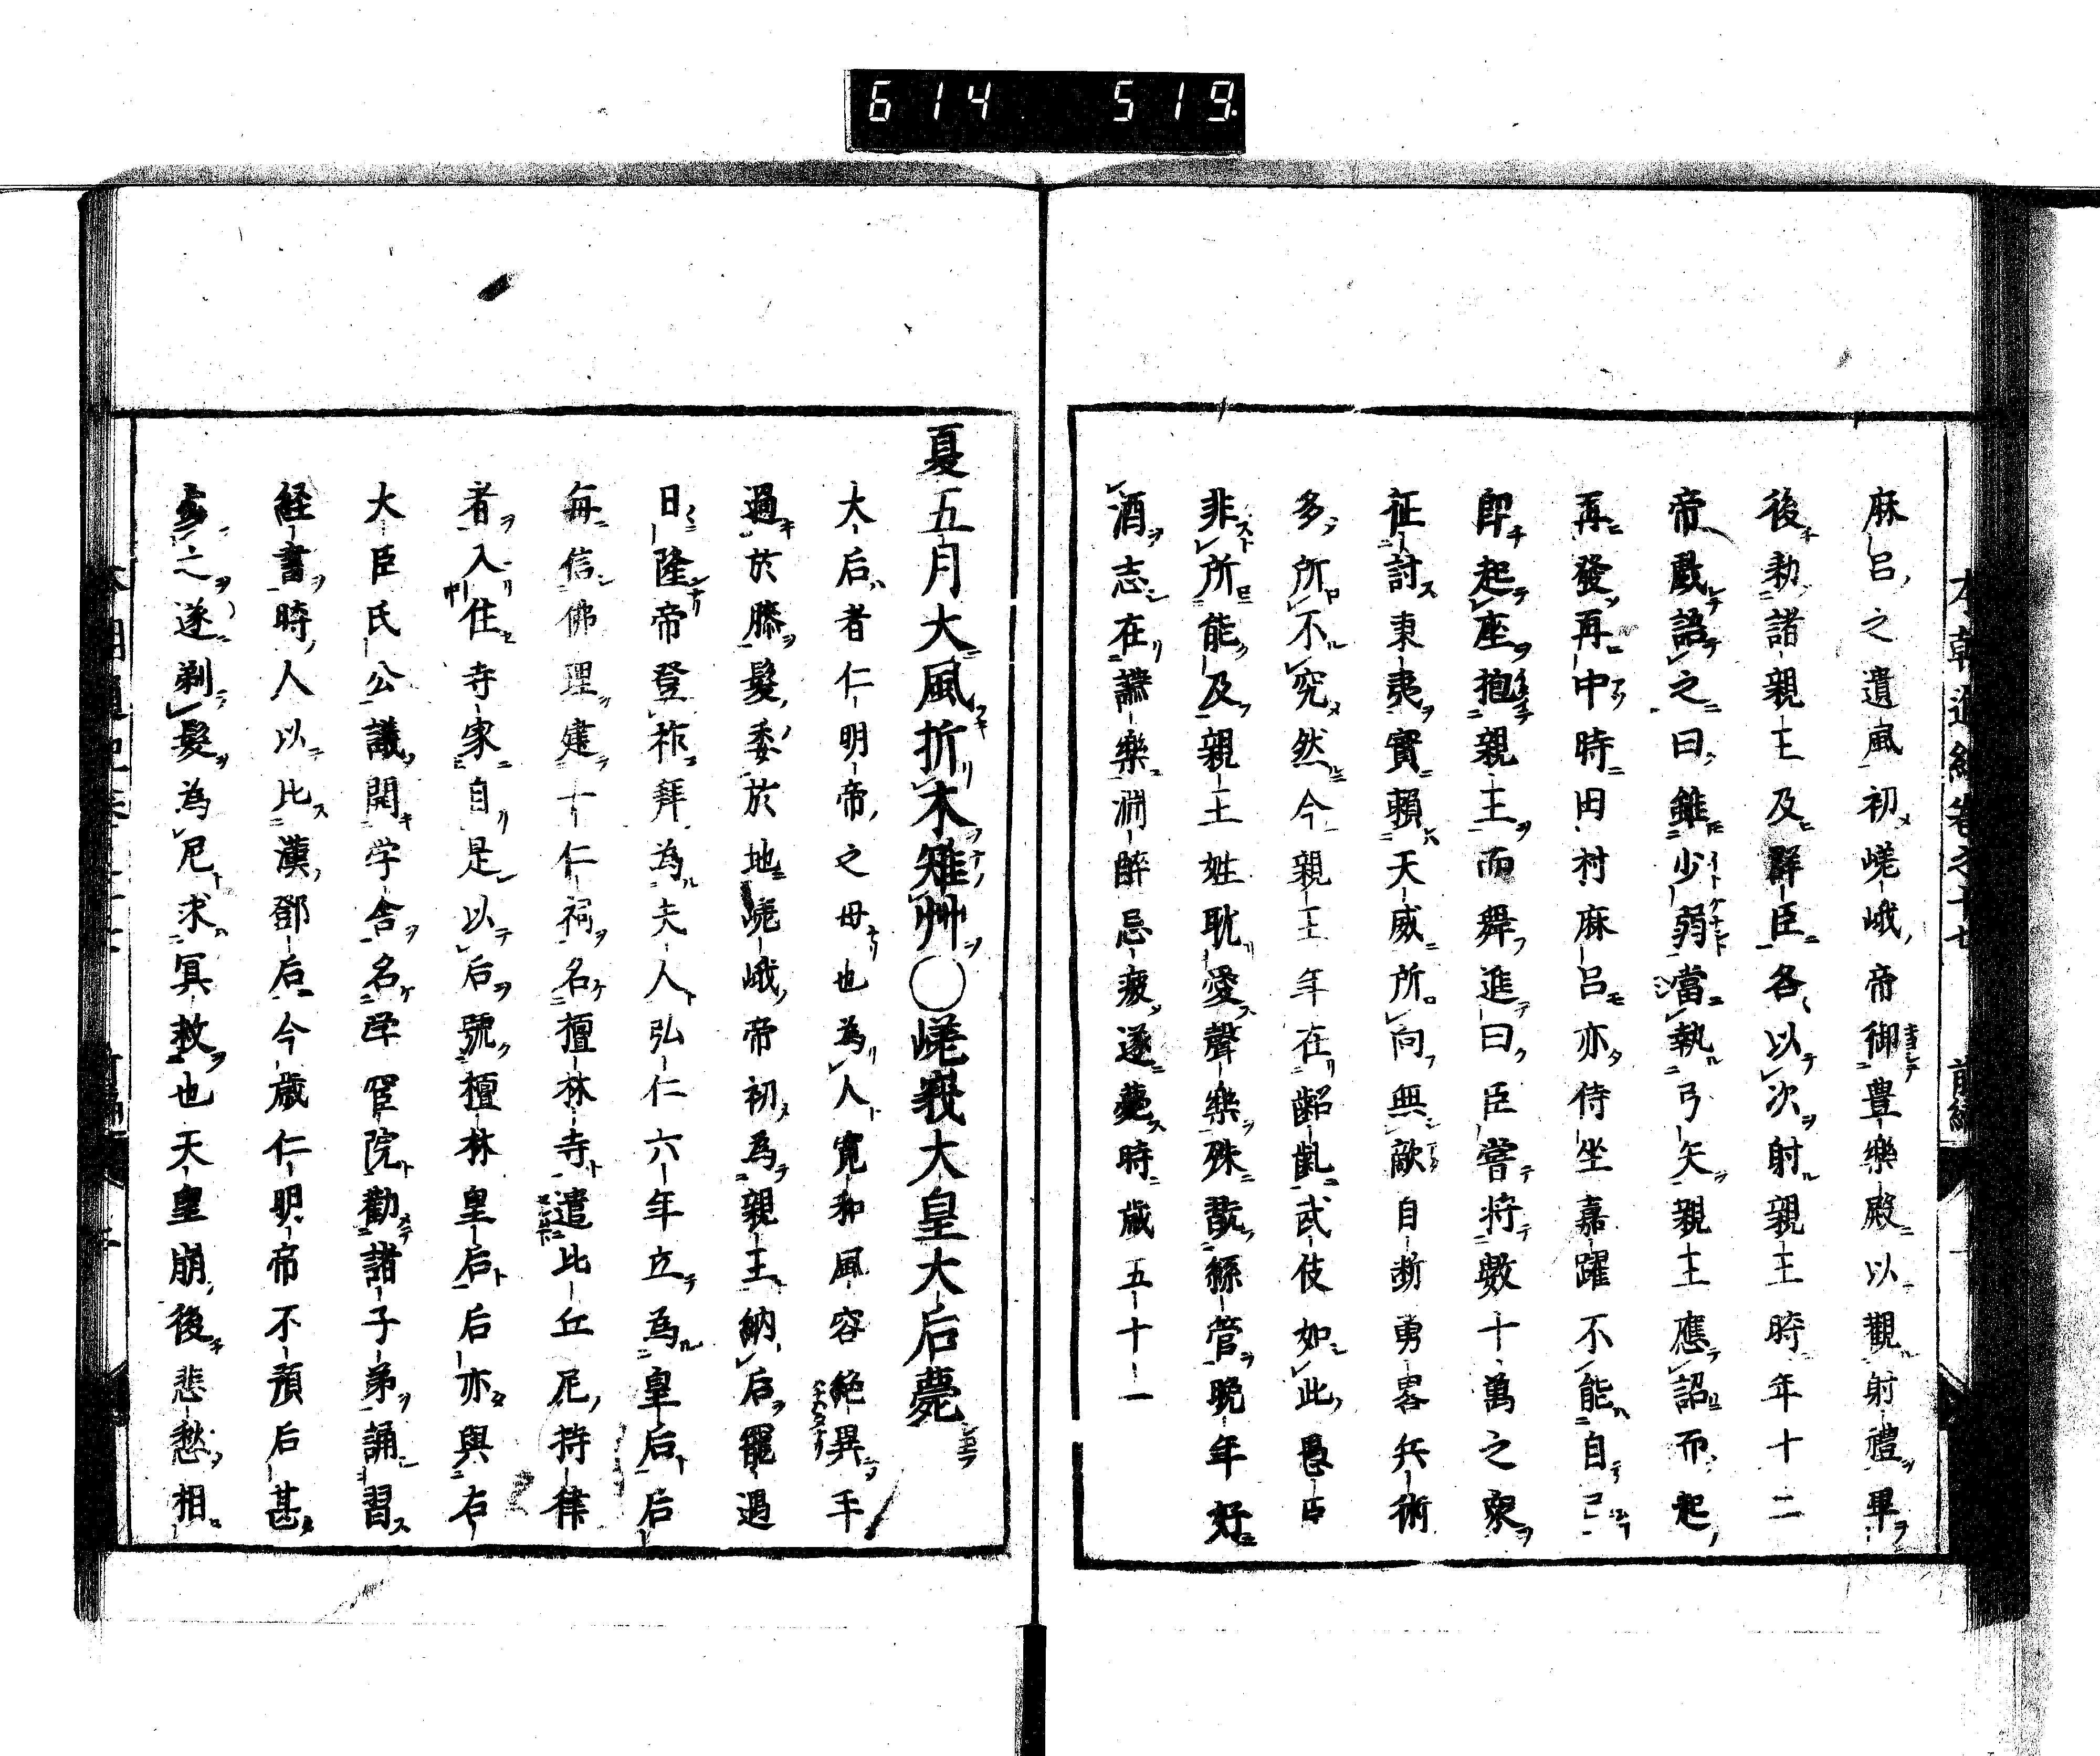 614 519
本朝通紀卷之十七 前編
麻呂之遺風初嵯峨帝御豊樂殿以觀射禮畢
後勅諸親王及群臣各以次射親王時年十二
帝戲語之曰雖少弱當執弓矢親王應詔而起
再發再中時田村麻呂亦侍坐嘉躍不能自已
即起座抱親王而舞進曰臣嘗將數十萬之衆
征討東夷實賴天威所向無敵自斷勇畧兵術
多所不究然今親王年在齠齓武伎如此愚臣
非所能及親王姓耽愛聲樂殊翫絲管晩年好
酒志在讌樂淵醉忌疲遂薨時歳五十一
夏五月大風折木雉艸〇嵯峩大皇大后薨
大后者仁明帝之母也為人寛和風容絶異手
過於膝髮委於地嵯峨帝初為親王納后寵遇
日隆帝登祚拜為夫人弘仁六年立為皇后后
毎信佛理建十仁祠名檀林寺遣比丘尼持律
者入住寺家自是以后號檀林皇后后亦與右
大臣氏公議開学舎名学官院勸諸子弟誦習
経書時人以比漢鄧后今歳仁明帝不預后甚
之遂剃髮為尼求冥救也天皇崩後悲愁相